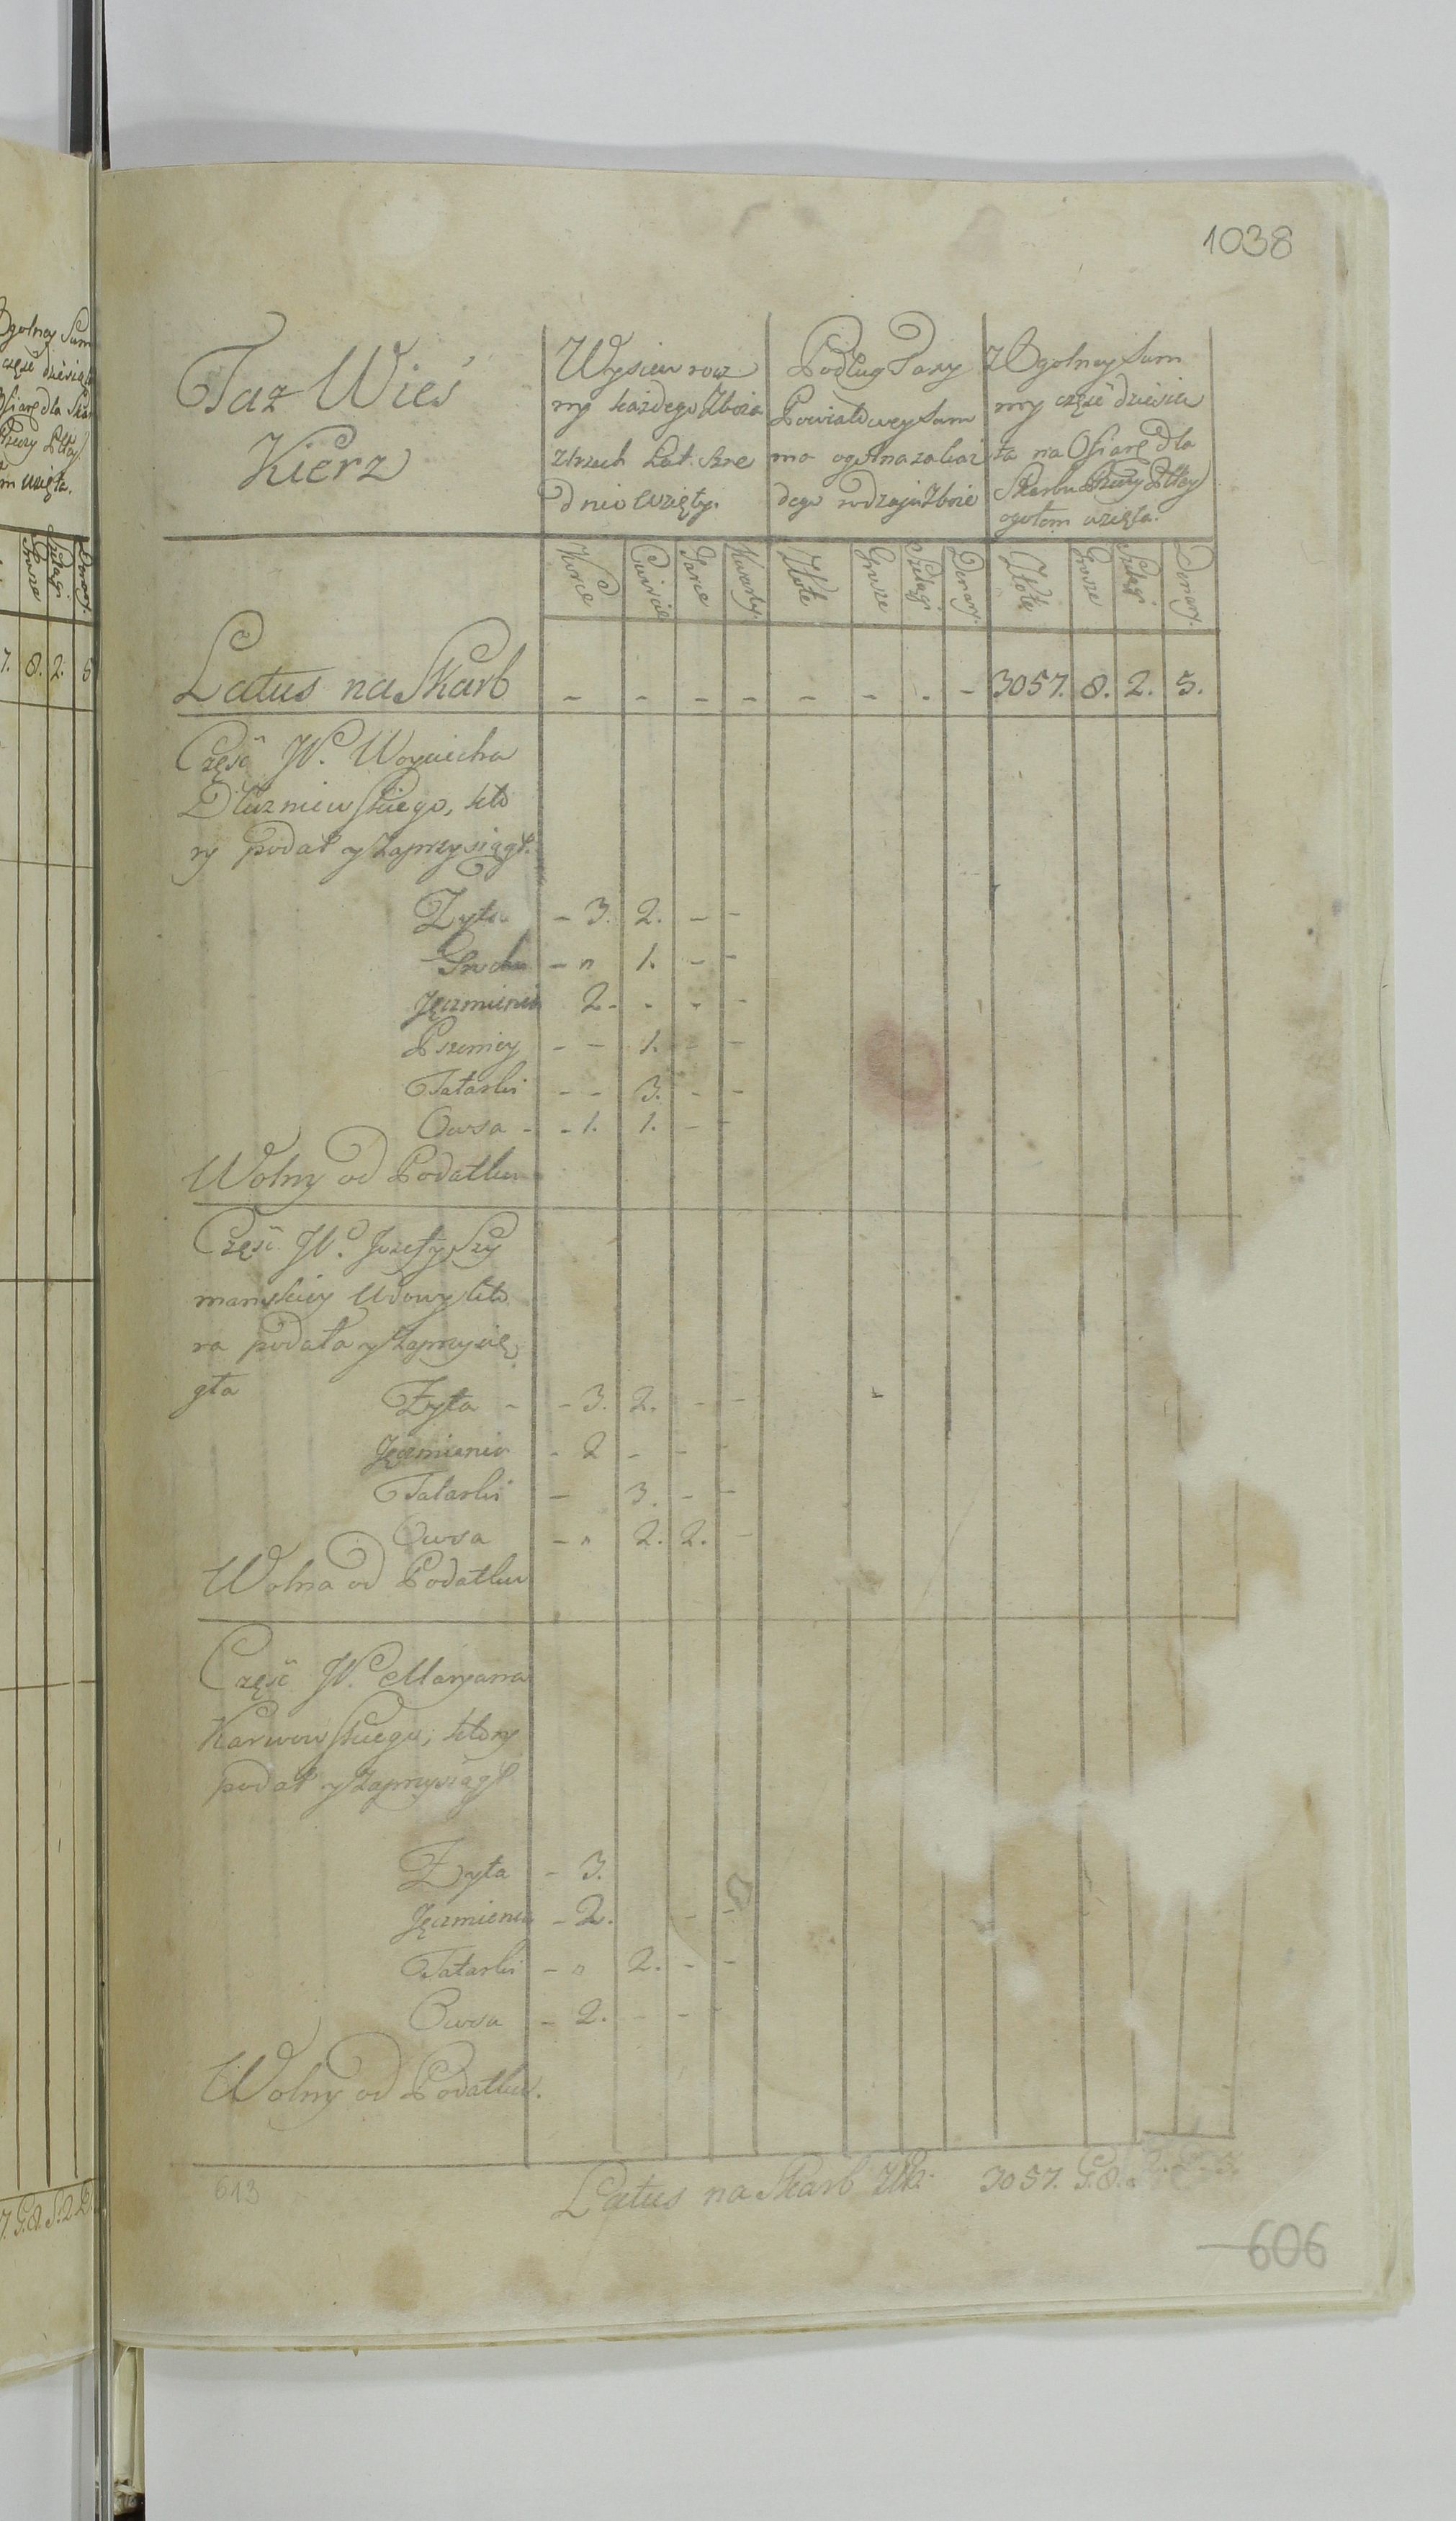 1038
Taz Wieś
Kierz
Wysiew rocz
ny każdego Zboża
z trzech Lat. Sre
dnio wzięty.
Podług Taxy
Powiatowey Sum
ma ogolna za każ
dego rodzaju Zboże
Z Ogolney Sum
my część dziesią
ta na Ofiarę dla
Skarbu Rzeczy Pltey
ogołem wzięta.
Korce Cwircie Garce Kwarty Złote Grosze Szelągi Denary. Złote Grosze Szelągi Denary.
Latus na Skarb - - - - - - - - 3057. 8. 2. 5.
Część W. Woyciecha
Dłużniewskiego, kto
ry podał y zaprzysiągł.
Zyta - 3. 2. - -
Grochu - " 1. - -
Jęczmienia 2. - - -
Pszenicy - - 1. - -
Tatarki - - 3. - -
Owsa - - 1. 1. - -
Wolny od Podatku
Część W. Jozefy Szy
manskiey Wdowy kto
ra podała y zaprzysię
gła
Zyta - - 3. 2. - -
Jęczmienia - 2 - - -
Tatarki - 3. - -
Owsa - " 2. 2. -
Wolna od Podatku
Część W. Maryana
Karwowskiego, ktory
podał y zaprzysiągł
Zyta - 3.
Jęczmienia - 2. - -
Tatarki - " 2. - -
Owsa - 2. - -
Wolny od Podatku.
613
Latus na Skarb Złł. 3057. G. 8.
606
Ogolney Sum
część dziesią
Ofiarę dla Ska
Rzeczy Pltey
m wzięta.
Grosze Szelągi Denary.
7. 8. 2. 5
7. G. 8. S. 2. D.